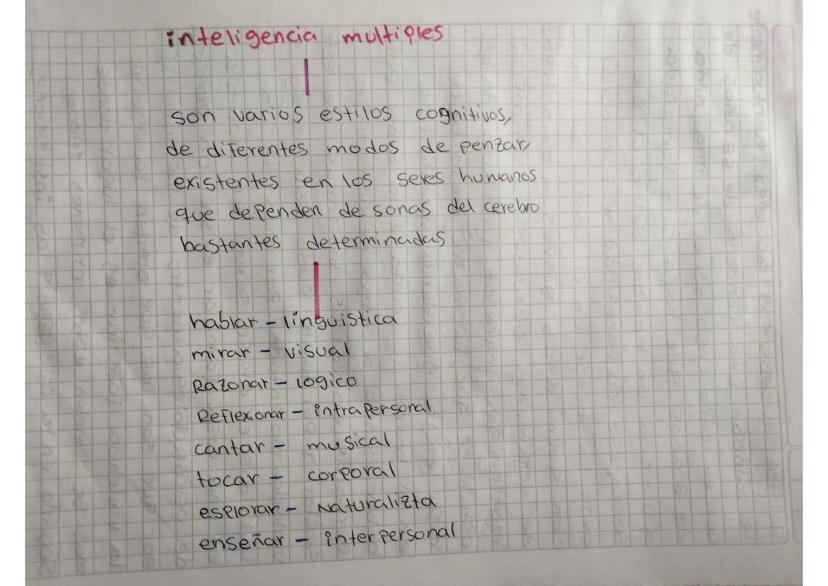 inteligencia multiples
son varios estilos cognitivos,
de diferentes modos de penzar,
existentes en los seres humanos
que dependen de sonas del cerebro
bastantes determinadas
hablar - linguistica
mirar - visual
Razonar - logico
Reflexionar - intrapersonal
cantar - musical
tocar - corporal
esplorar - Naturalizta
enseñar - interpersonal